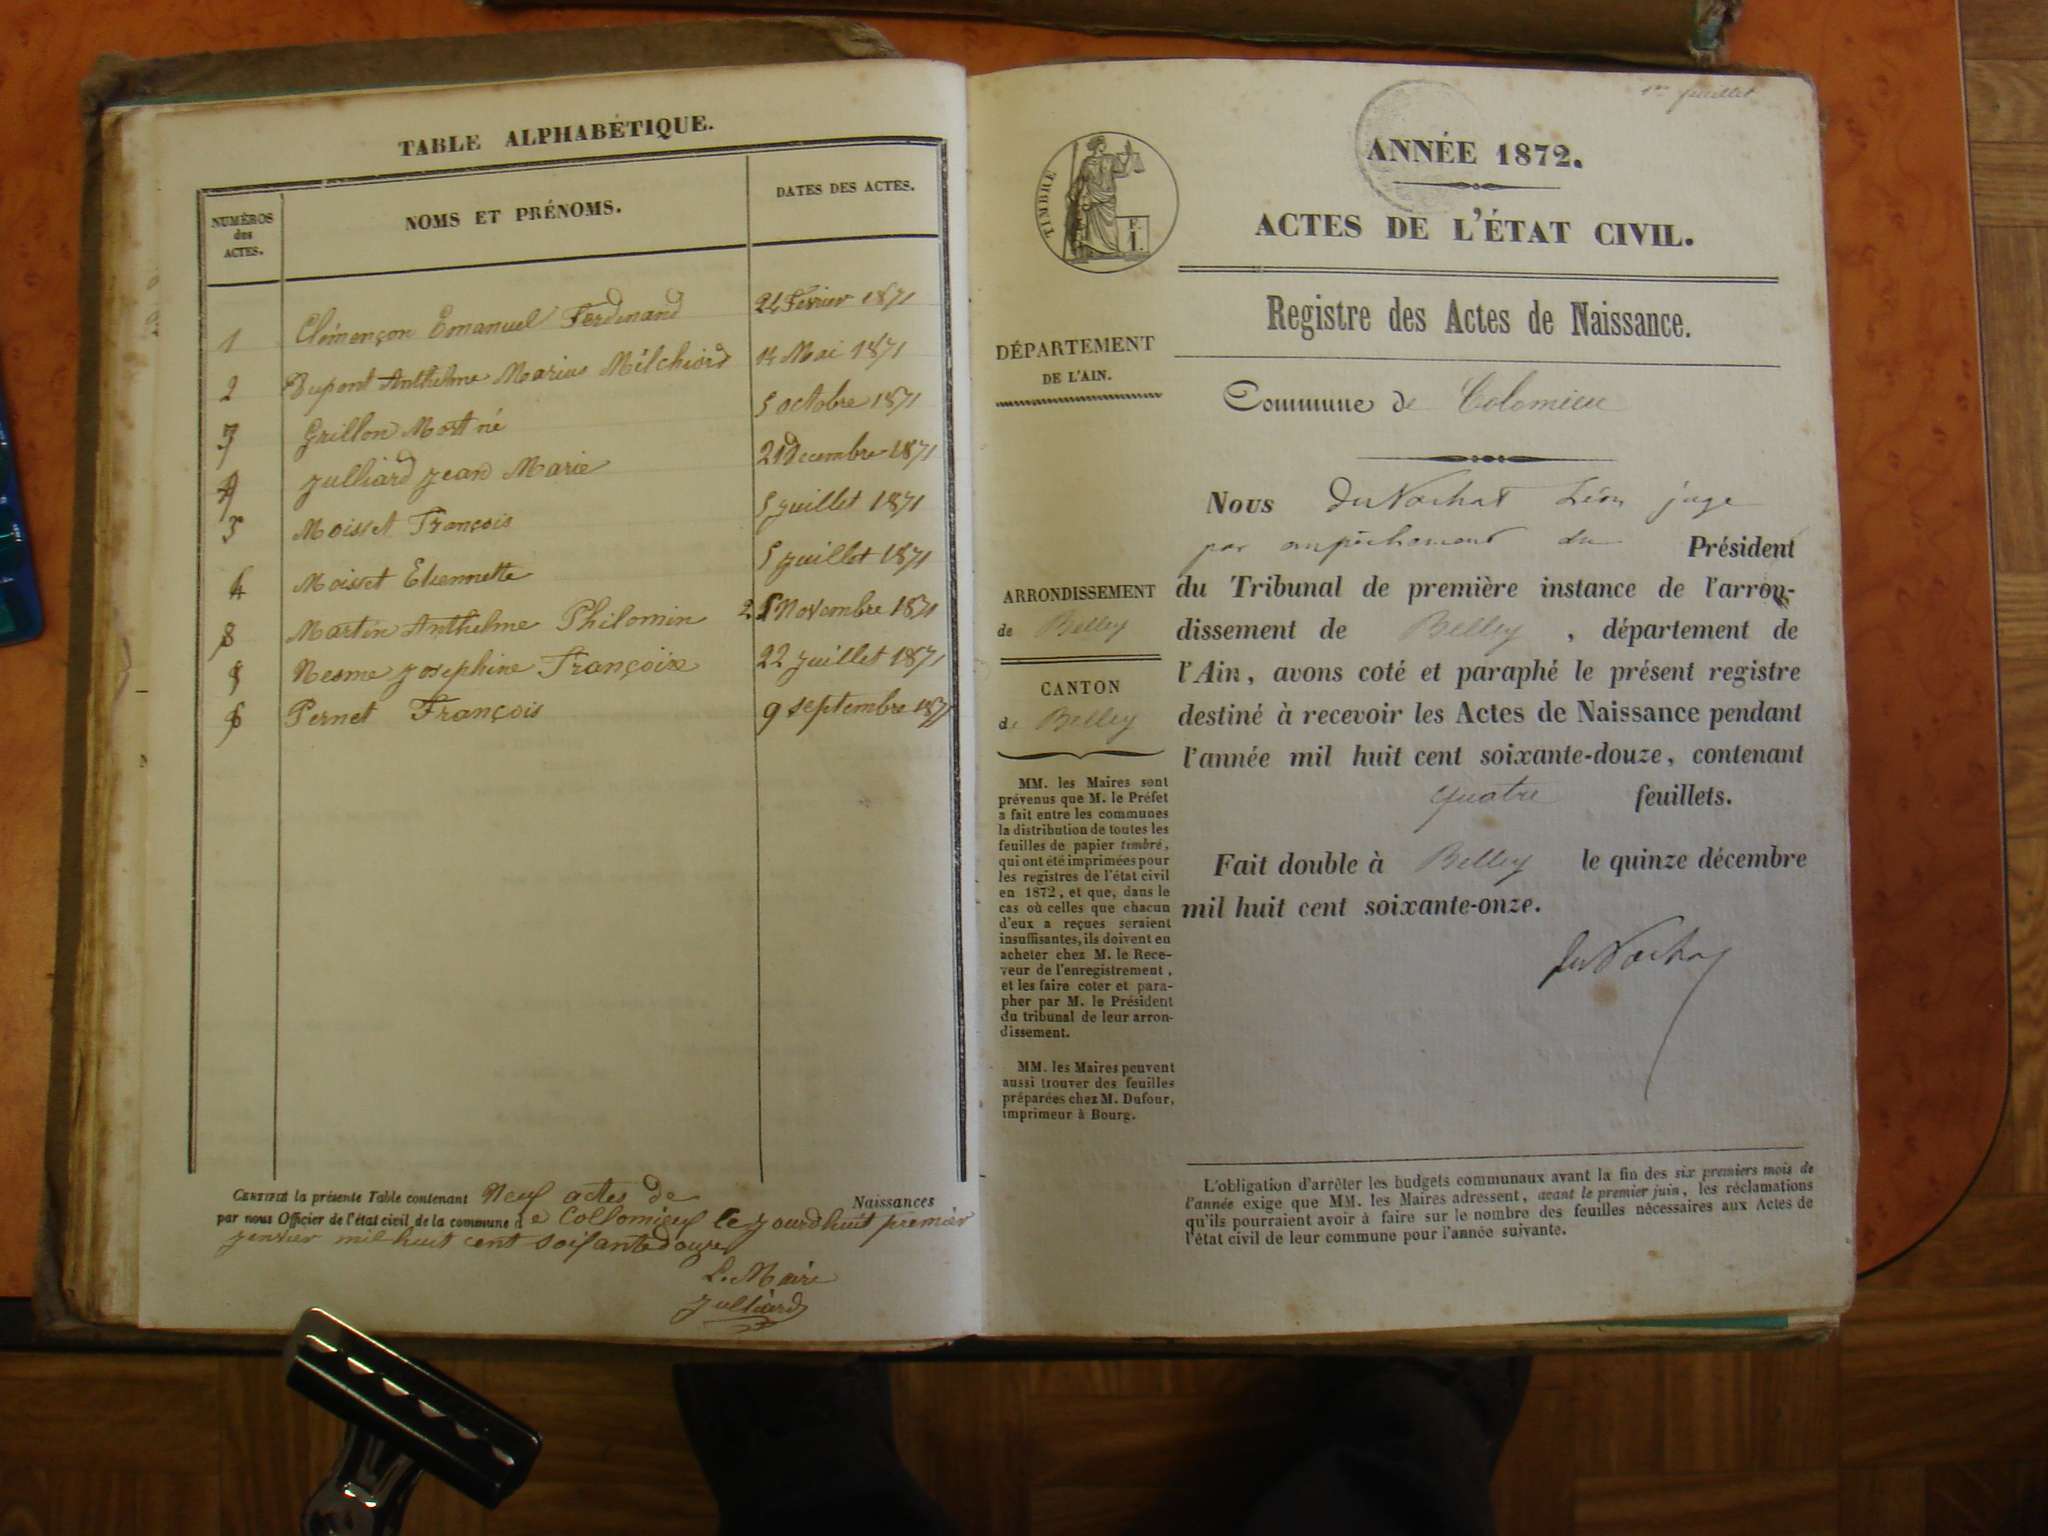 TABLE ALPHABÉTIQUE.
NUMÉROS
des
ACTES.
NOMS ET PRÉNOMS.
DATES DES ACTES.
1 Clémençon Emanuel Ferdinand 24 Février 1871
2 Dupont Anthelme Marius Mélchiord 14 Mai 1871
7 Grillon Mort né 5 octobre 1871
9 Julliard Jean Marie 21 decembre 1871
3 Moisset François 5 juillet 1871
4 Moisset Etiennette 5 juillet 1871
8 Martin Anthelme Philomin 25 Novembre 1871
5 Nesme Josephine Françoise 22 juillet 1871
6 Pernet François 9 septembre 1871
CERTIFIÉ la présente Table contenant Neuf actes de Naissances
par nous Officier de l'état civil de la commune de Collomieu le jourdhuit premier
janvier mil huit cent soisante douze
Le Maire
Julliard
1er feuillet
TIMBRE
F.
1.
ANNÉE 1872.
ACTES DE L'ÉTAT CIVIL.
Registre des Actes de Naissance.
DÉPARTEMENT
DE L'AIN.
Commune de Colomieu
Nous Du Nachat Léon juge
par empêchement du Président
du Tribunal de première instance de l'arron-
dissement de Belley, département de
l'Ain, avons coté et paraphé le présent registre
destiné à recevoir les Actes de Naissance pendant
l'année mil huit cent soixante-douze, contenant
quatre feuillets.
Fait double à Belley le quinze décembre
mil huit cent soixante-onze.
ARRONDISSEMENT
de Belley
CANTON
de Belley
MM. les Maires sont
prévenus que M. le Préfet
a fait entre les communes
la distribution de toutes les
feuilles de papier timbré,
qui ont été imprimées pour
les registres de l'état civil
en 1872, et que, dans le
cas où celles que chacun
d'eux a reçues seraient
insuffisantes, ils doivent en
acheter chez M. le Rece-
veur de l'enregistrement,
et les faire coter et para-
pher par M. le Président
du tribunal de leur arron-
dissement.
MM. les Maires peuvent
aussi trouver des feuilles
préparées chez M. Dufour,
imprimeur à Bourg.
Du Nachat
L'obligation d'arrêter les budgets communaux avant la fin des six premiers mois de
l'année exige que MM. les Maires adressent, avant le premier juin, les réclamations
qu'ils pourraient avoir à faire sur le nombre des feuilles nécessaires aux Actes de
l'état civil de leur commune pour l'année suivante.